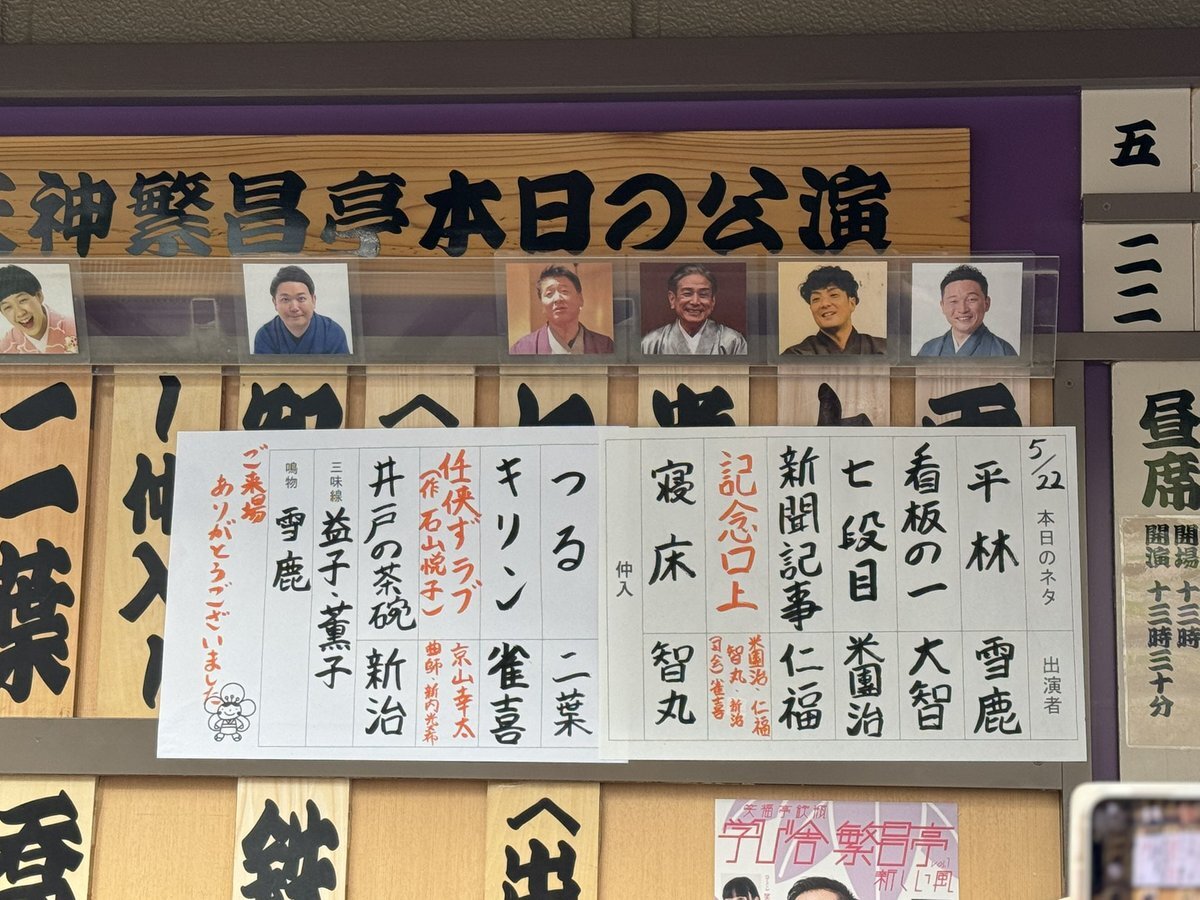 神繁昌亭本日の公演
五
二二
昼席
開場 十三時
開演 十三時三十分
5/22 本日のネタ 出演者
平林 雪鹿
看板の一 大智
七段目 米團治
新聞記事 仁福
記念口上 米團治・仁福
智丸・新治
(司会)雀喜
寝床 智丸
仲入
つる 二葉
キリン 雀喜
任侠ずラブ 京山幸太
(作 石山悦子) 曲師 新内光希
井戸の茶碗 新治
三味線 益子・薫子
鳴物 雪鹿
ご来場
ありがとうございました
二葉
仲入
笑福亭鉄瓶
学び舎 繁昌亭
vol.1
新しい風
鉄